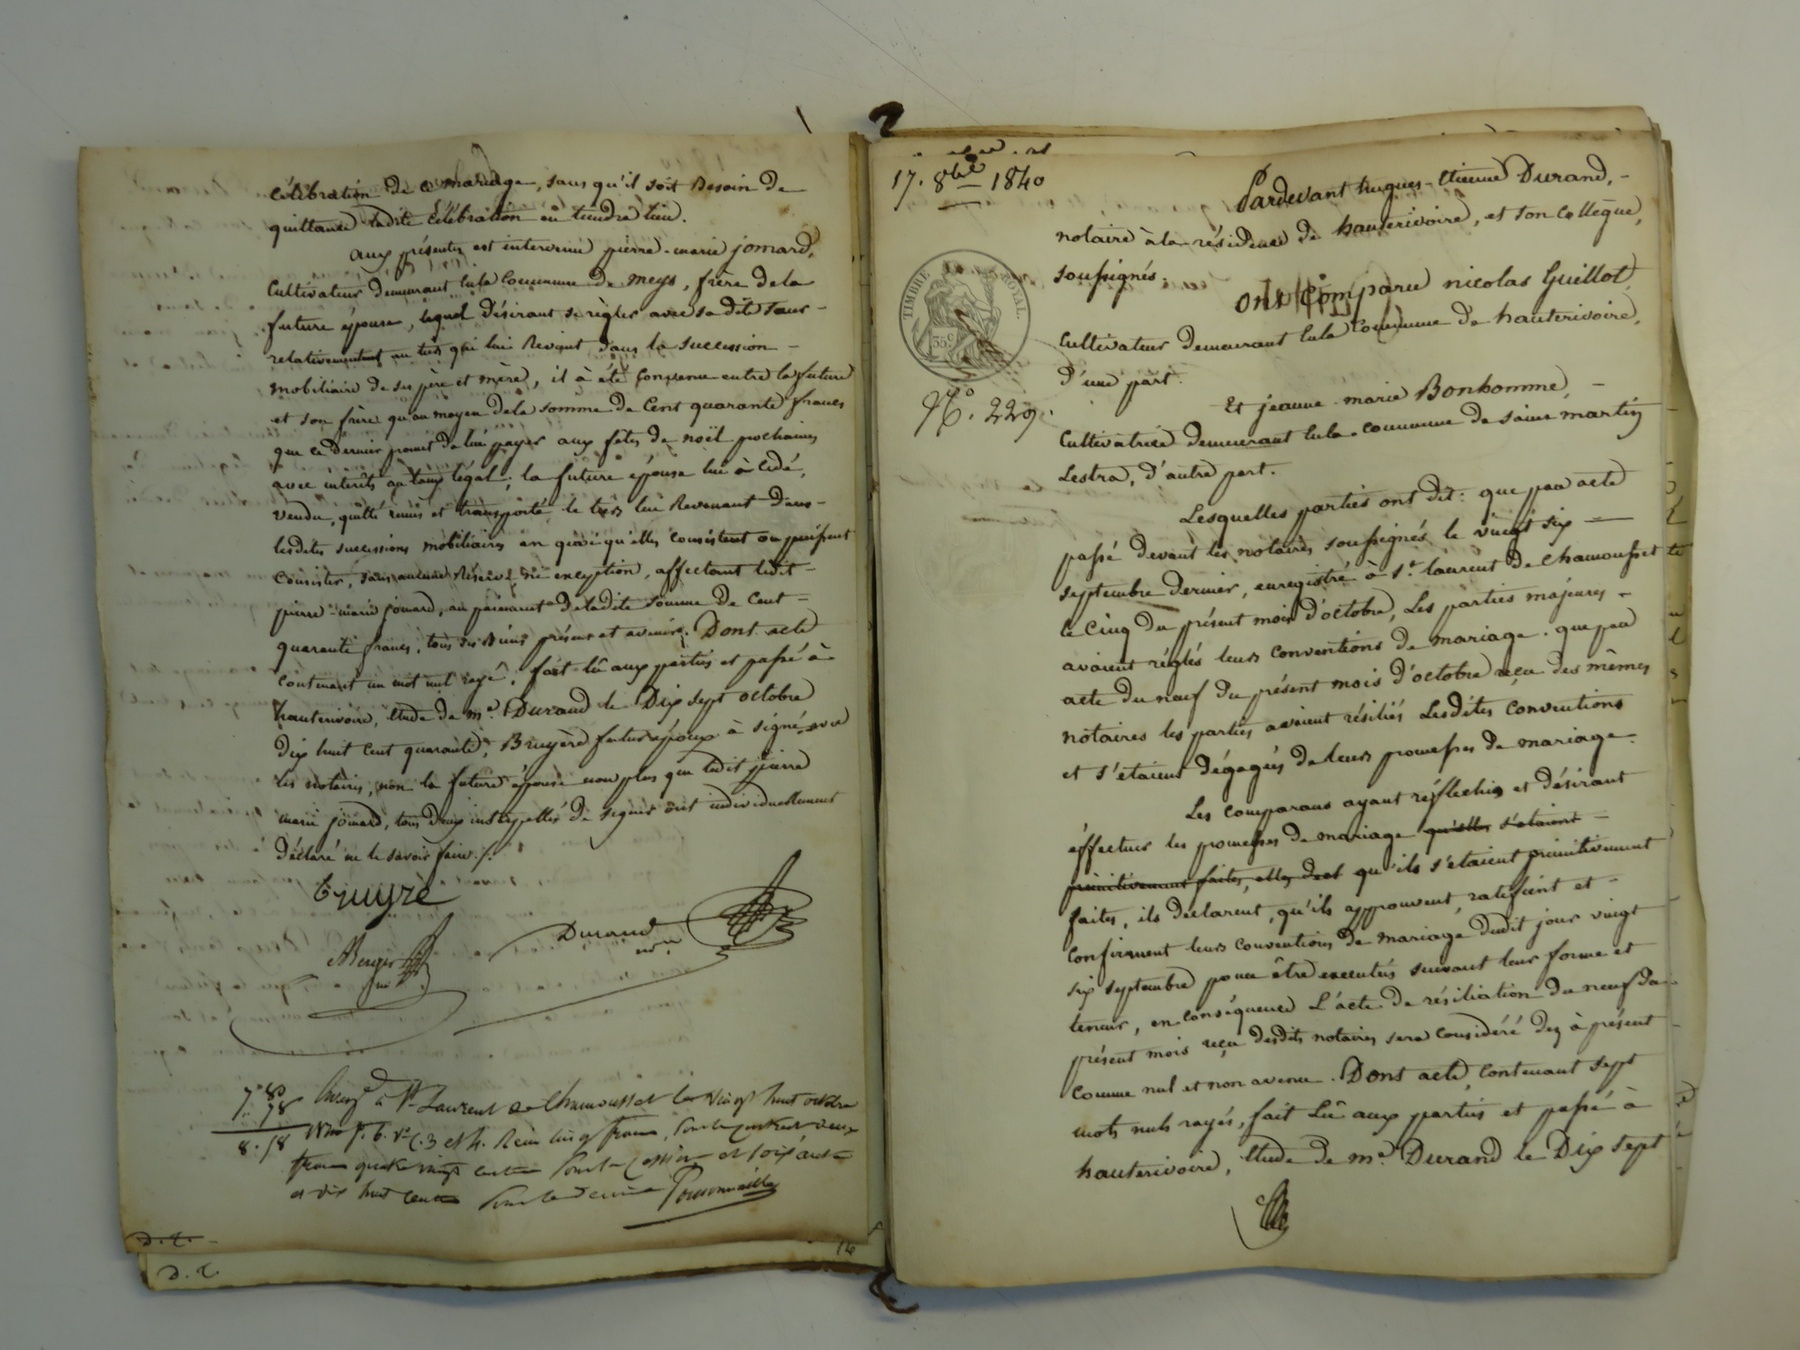 célébration de ce mariage, sans qu'il soit Besoin de
quittance ladite Célébration en tiendra lieu.
Aux présentes est intervenu pierre-marie jomard,
Cultivateur demeurant en la Commune de meys, frère de la
future épouse, lequel désirant se règler avec sa dite Sœur
relativement au tiers qui lui Revient dans la Succession
mobiliaire de ses père et mère, il à été Convenu entre la future
et son frère qu'au moyen de la somme de Cent quarante francs
que ce dernier promet de lui payer aux fêtes de noël prochaines
avec intérêts au taux légal; la future épouse lui à cédé,
vendu, quitté remis et transporté, le tiers lui Revenant dans
lesdites successions mobiliaires en quoi qu'elles consistent ou puissent
Consister, sans aucune Réserve ni exception, affectant ledit
pierre-marie jomard, au paiement de ladite somme de Cent
quarante francs, tous ses Biens présens et avenirs. Dont acte
contenant un mot nul rayé, fait lû aux parties et passé à
hauterivoire, étude de me. Durand le Dix sept octobre
Dix huit cent quarante, Bruyère futur époux à signé avec
les notaires, non la future épouse non plus que ledit pierre
marie jomard, tous deux interpellés de signer ont individuellement
déclaré ne le savoir faire./.
Bruyre
Durand
nre.
7. 80
78
8. 58
Enreg. à St Laurent de Chamousset le vingt huit octobre
f. 6. vo C. 3 et 4. Reçu cinq francs, pour le contrat deux
francs quatre vingt cent. Pour la cession et soixante
et dix huit cent. Pour le decime
D. C.
D. C.
17. 8bre 1840
Pardevant hugues-Etienne Durand,
notaire à la résidence de hauterivoire, et son Collègue,
soussignés.
TIMBRE ROYAL
35 c
ont Comparu nicolas Guillot,
Cultivateur demeurant en la Commune de hauterivoire,
d'une part.
No. 229.
Et jeanne-marie Bonhomme,
Cultivatrice demeurant en la commune de saint martin
Lestra, d'autre part.
Lesquelles parties ont dit: que par acte
passé devant les notaires soussignés le vingt six
septembre dernier, enregistré à St. laurent de Chamousset
le Cinq du présent mois d'octobre, Les parties majeures
avaient réglés leurs conventions de mariage. que par
acte du neuf du présent mois d'octobre reçu des mêmes
notaires les parties avaient résiliés Lesdites conventions
et s'étaient dégagés de leurs promesses de mariage.
Les comparans ayant réflechis et désirant
éffectuer les promesses de mariage qu'elles s'étaient
primitivement faites, elles dect qu'ils s'étaient primitivement
faites, ils déclarent, qu'ils approuvent, ratifient et
confirment leurs conventions de mariage dudit jour vingt
six septembre pour être executés suivant leur forme et
teneur, en conséquence L'acte de résiliation du neuf du
présent mois reçu desdits notaires sera considéré dez à présent
comme nul et non avenu. Dont acte, contenant sept
mots nuls rayés, fait Lû aux parties et passé à
hauterivoire, étude de me. Durand le Dix sept